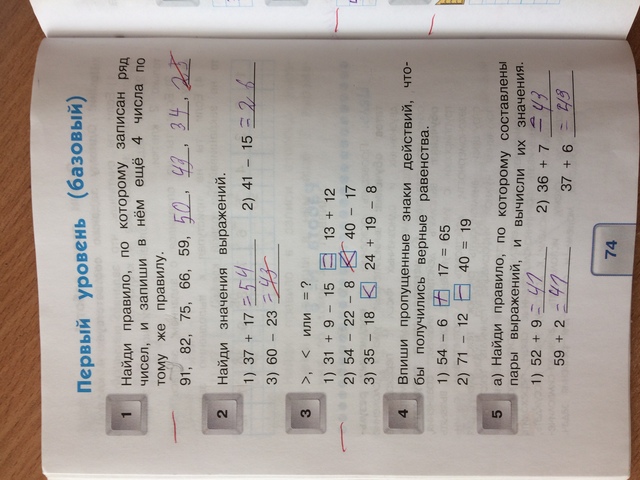 Первый уровень (базовый)
1 Найди правило, по которому записан ряд
чисел, и запиши в нём ещё 4 числа по
тому же правилу.
91, 82, 75, 66, 59, 50, 43, 34,
2 Найди значения выражений.
1) 37 + 17 =54 2) 41 − 15 =26
3) 60 − 23 =43
3 >, < или = ?
1) 31 + 9 − 15 = 13 + 12
2) 54 − 22 − 8 < 40 − 17
3) 35 − 18 < 24 + 19 − 8
4 Впиши пропущенные знаки действий, что-
бы получились верные равенства.
1) 54 − 6 + 17 = 65
2) 71 − 12 − 40 = 19
5 а) Найди правило, по которому составлены
пары выражений, и вычисли их значения.
1) 52 + 9 = 2) 36 + 7 = 43
59 + 2 = 37 + 6 = 43
74